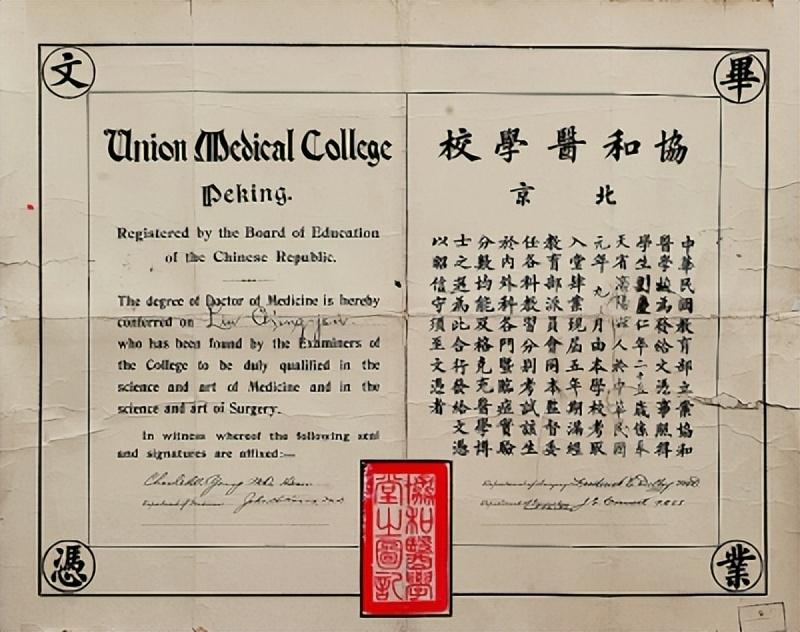 畢
業
文
憑
Union Medical College
Peking.
Registered by the Board of Education
of the Chinese Republic.
The degree of Doctor of Medicine is hereby
conferred on Liu Ching-jen
who has been found by the Examiners of
the College to be duly qualified in the
science and art of Medicine and in the
science and art of Surgery.
In witness whereof the following seal
and signatures are affixed:—
Charles W. Young M.D. Dean
Department of Medicine
協和醫學校
北京
中華民國教育部立案協和
醫學校為發給文憑事照得
學生劉慶仁年二十五歲係奉
天省瀋陽縣人於中華民國
元年九月由本學校考取
入堂肄業現屆五年期滿經
教育部派員會同本監督委
任各科教習分別考試該生
於內外科各門暨臨症實驗
分數均能及格克充醫學博
士之選為此合行發給文憑
以昭信守須至文憑者
Department of Surgery
Department of
協和醫學
堂之圖記